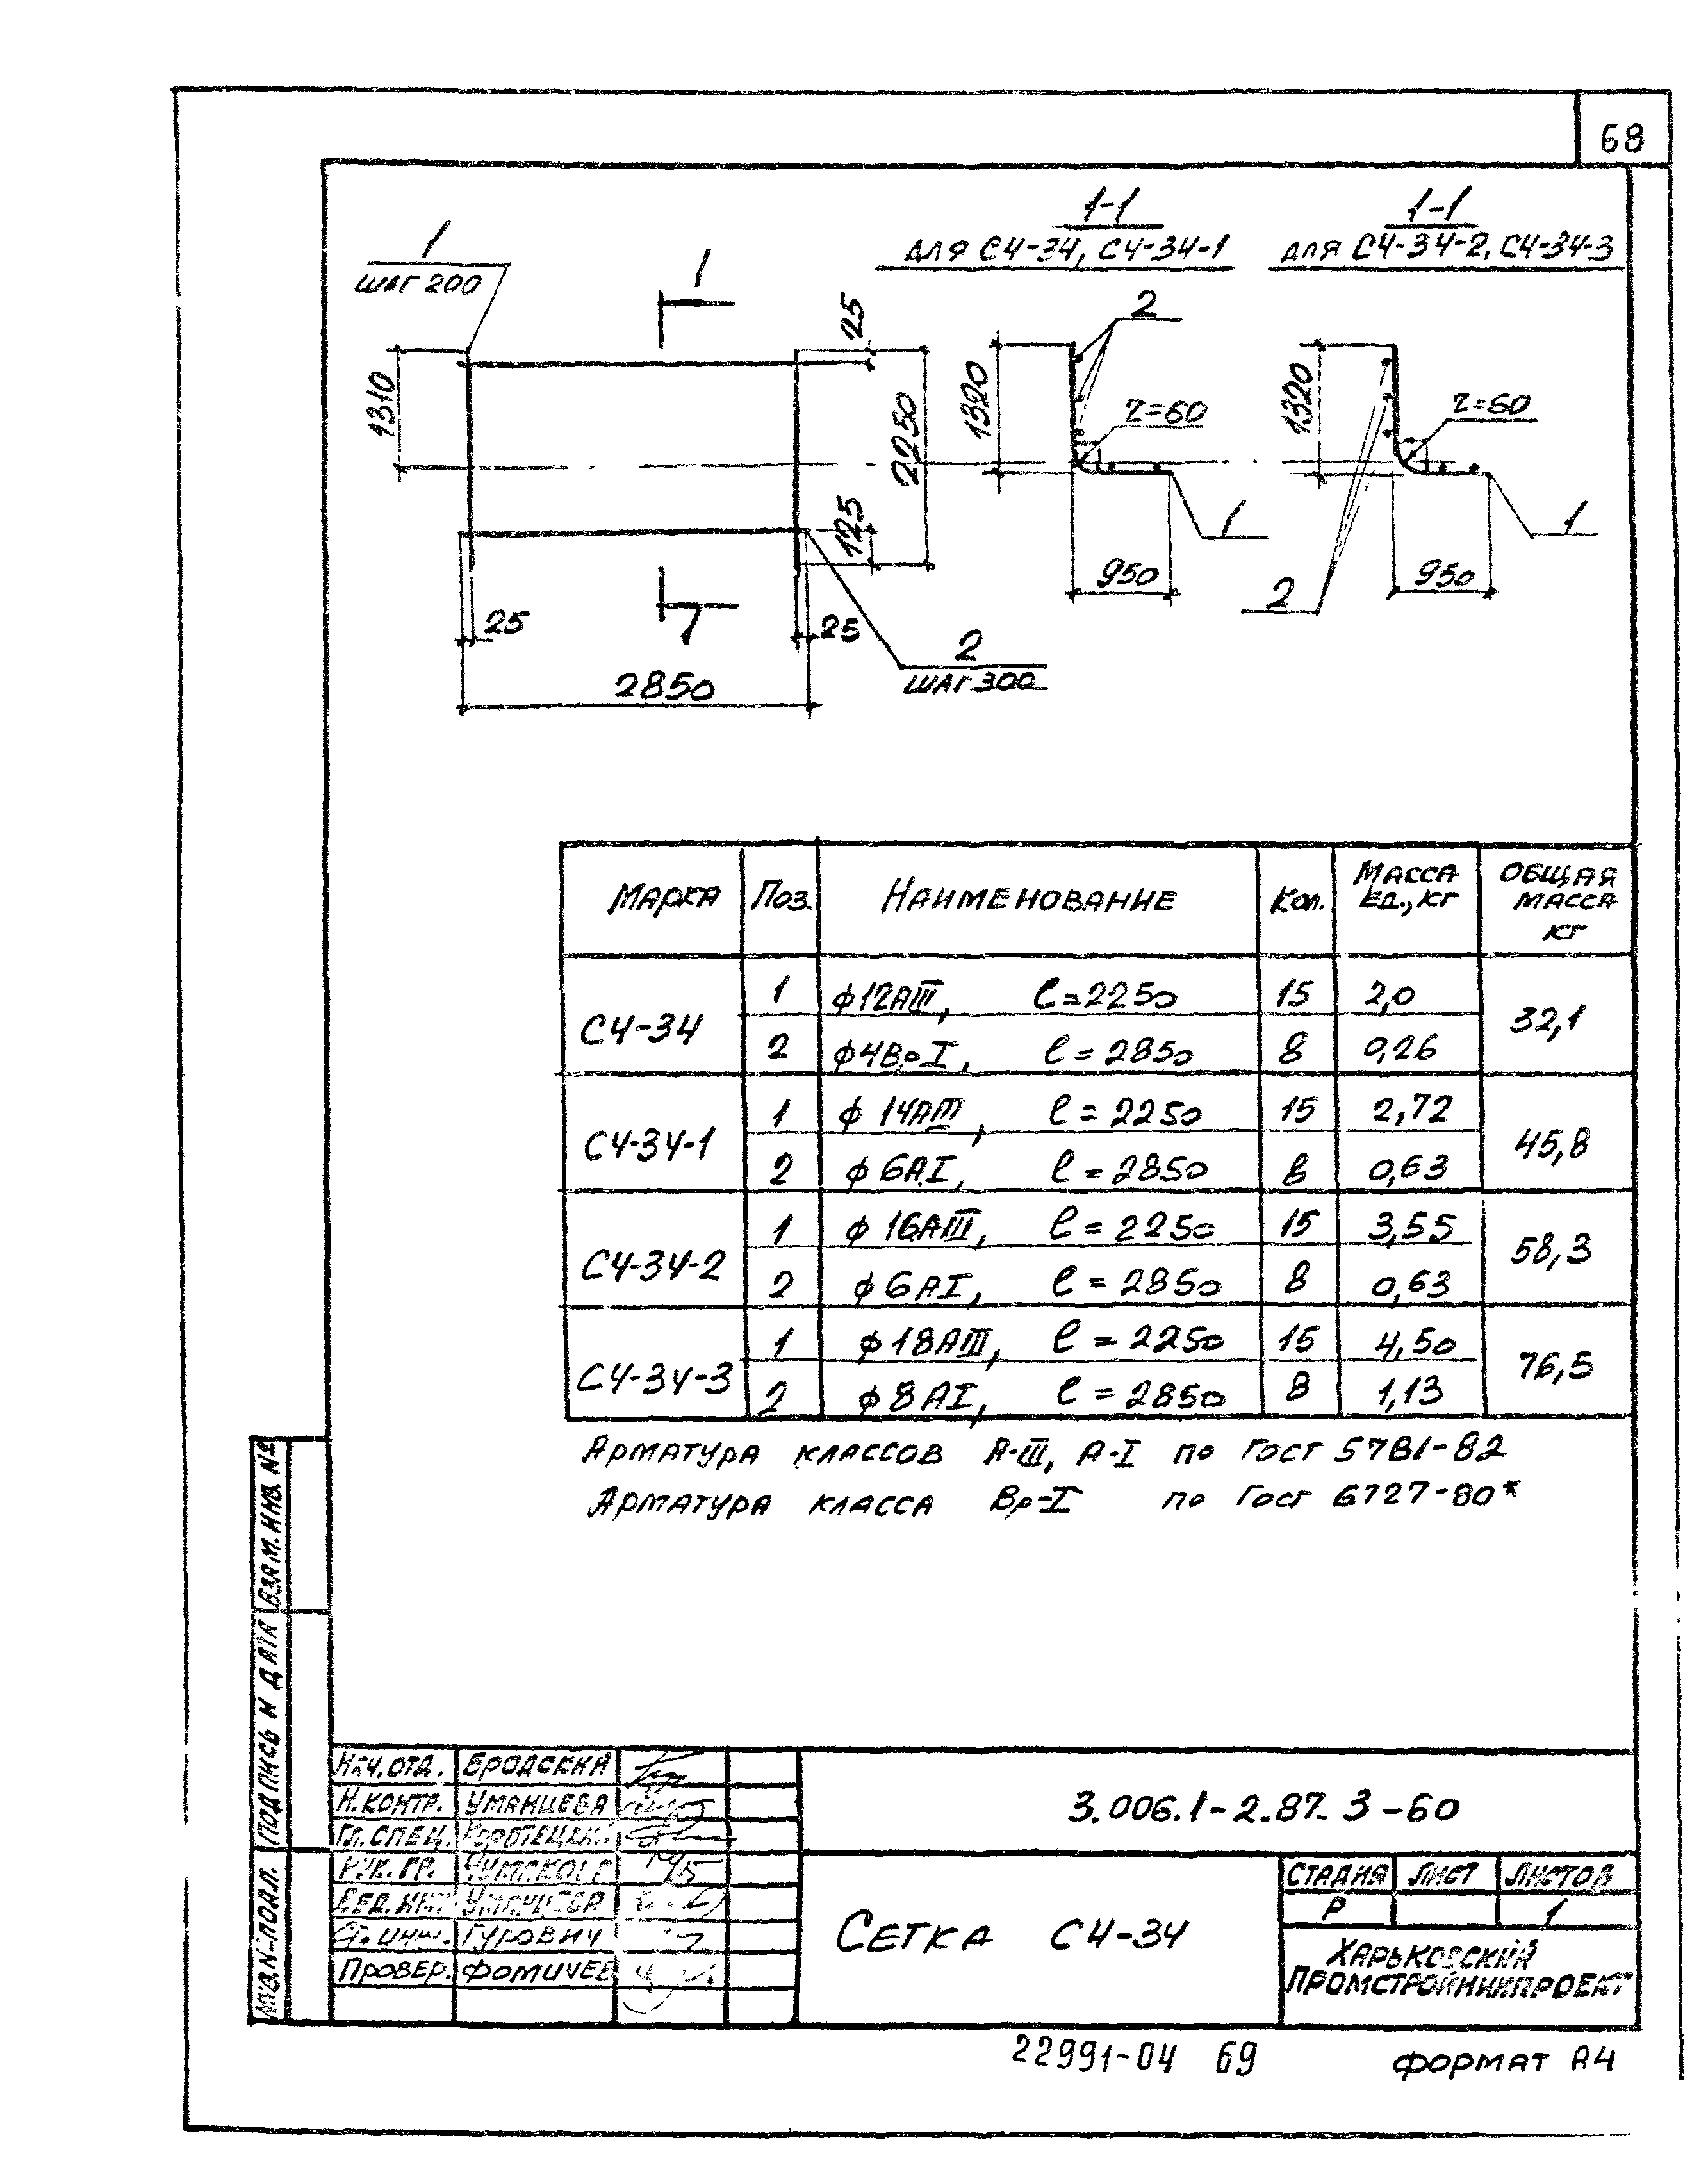 68
1-1
для С4-34, С4-34-1
1-1
для С4-34-2, С4-34-3
1
шаг 200
1
25
1310
2250
125
25
25
2850
1
2
шаг 300
2
1320
r=60
1
950
1320
r=60
1
2
950
Марка Поз. Наименование Кол. Масса ед., кг Общая масса кг
С4-34 1 ф12АIII, ℓ=2250 15 2,0 32,1
2 ф4Вр I, ℓ=2850 8 0,26
С4-34-1 1 ф 14АIII, ℓ=2250 15 2,72 45,8
2 ф 6АI, ℓ=2850 8 0,63
С4-34-2 1 ф 16АIII, ℓ=2250 15 3,55 58,3
2 ф 6АI, ℓ=2850 8 0,63
С4-34-3 1 ф 18АIII, ℓ=2250 15 4,50 76,5
2 ф 8АI, ℓ=2850 8 1,13
Арматура классов А-III, А-I по Гост 5781-82
Арматура класса Вр-I по Гост 6727-80*
Взам. инв. №
Подпись и дата
Инв. № подл.
Нач. отд. Бродский
Н. контр. Уманцева
Гл. спец.
Рук. гр.
Вед. инж.
Ст. инж. Гурович
Провер. Фомичев
3.006.1-2.87.3-60
Сетка С4-34
Стадия Лист Листов
Р 1
Харьковский
Промстройниипроект
22991-04 69
формат А4